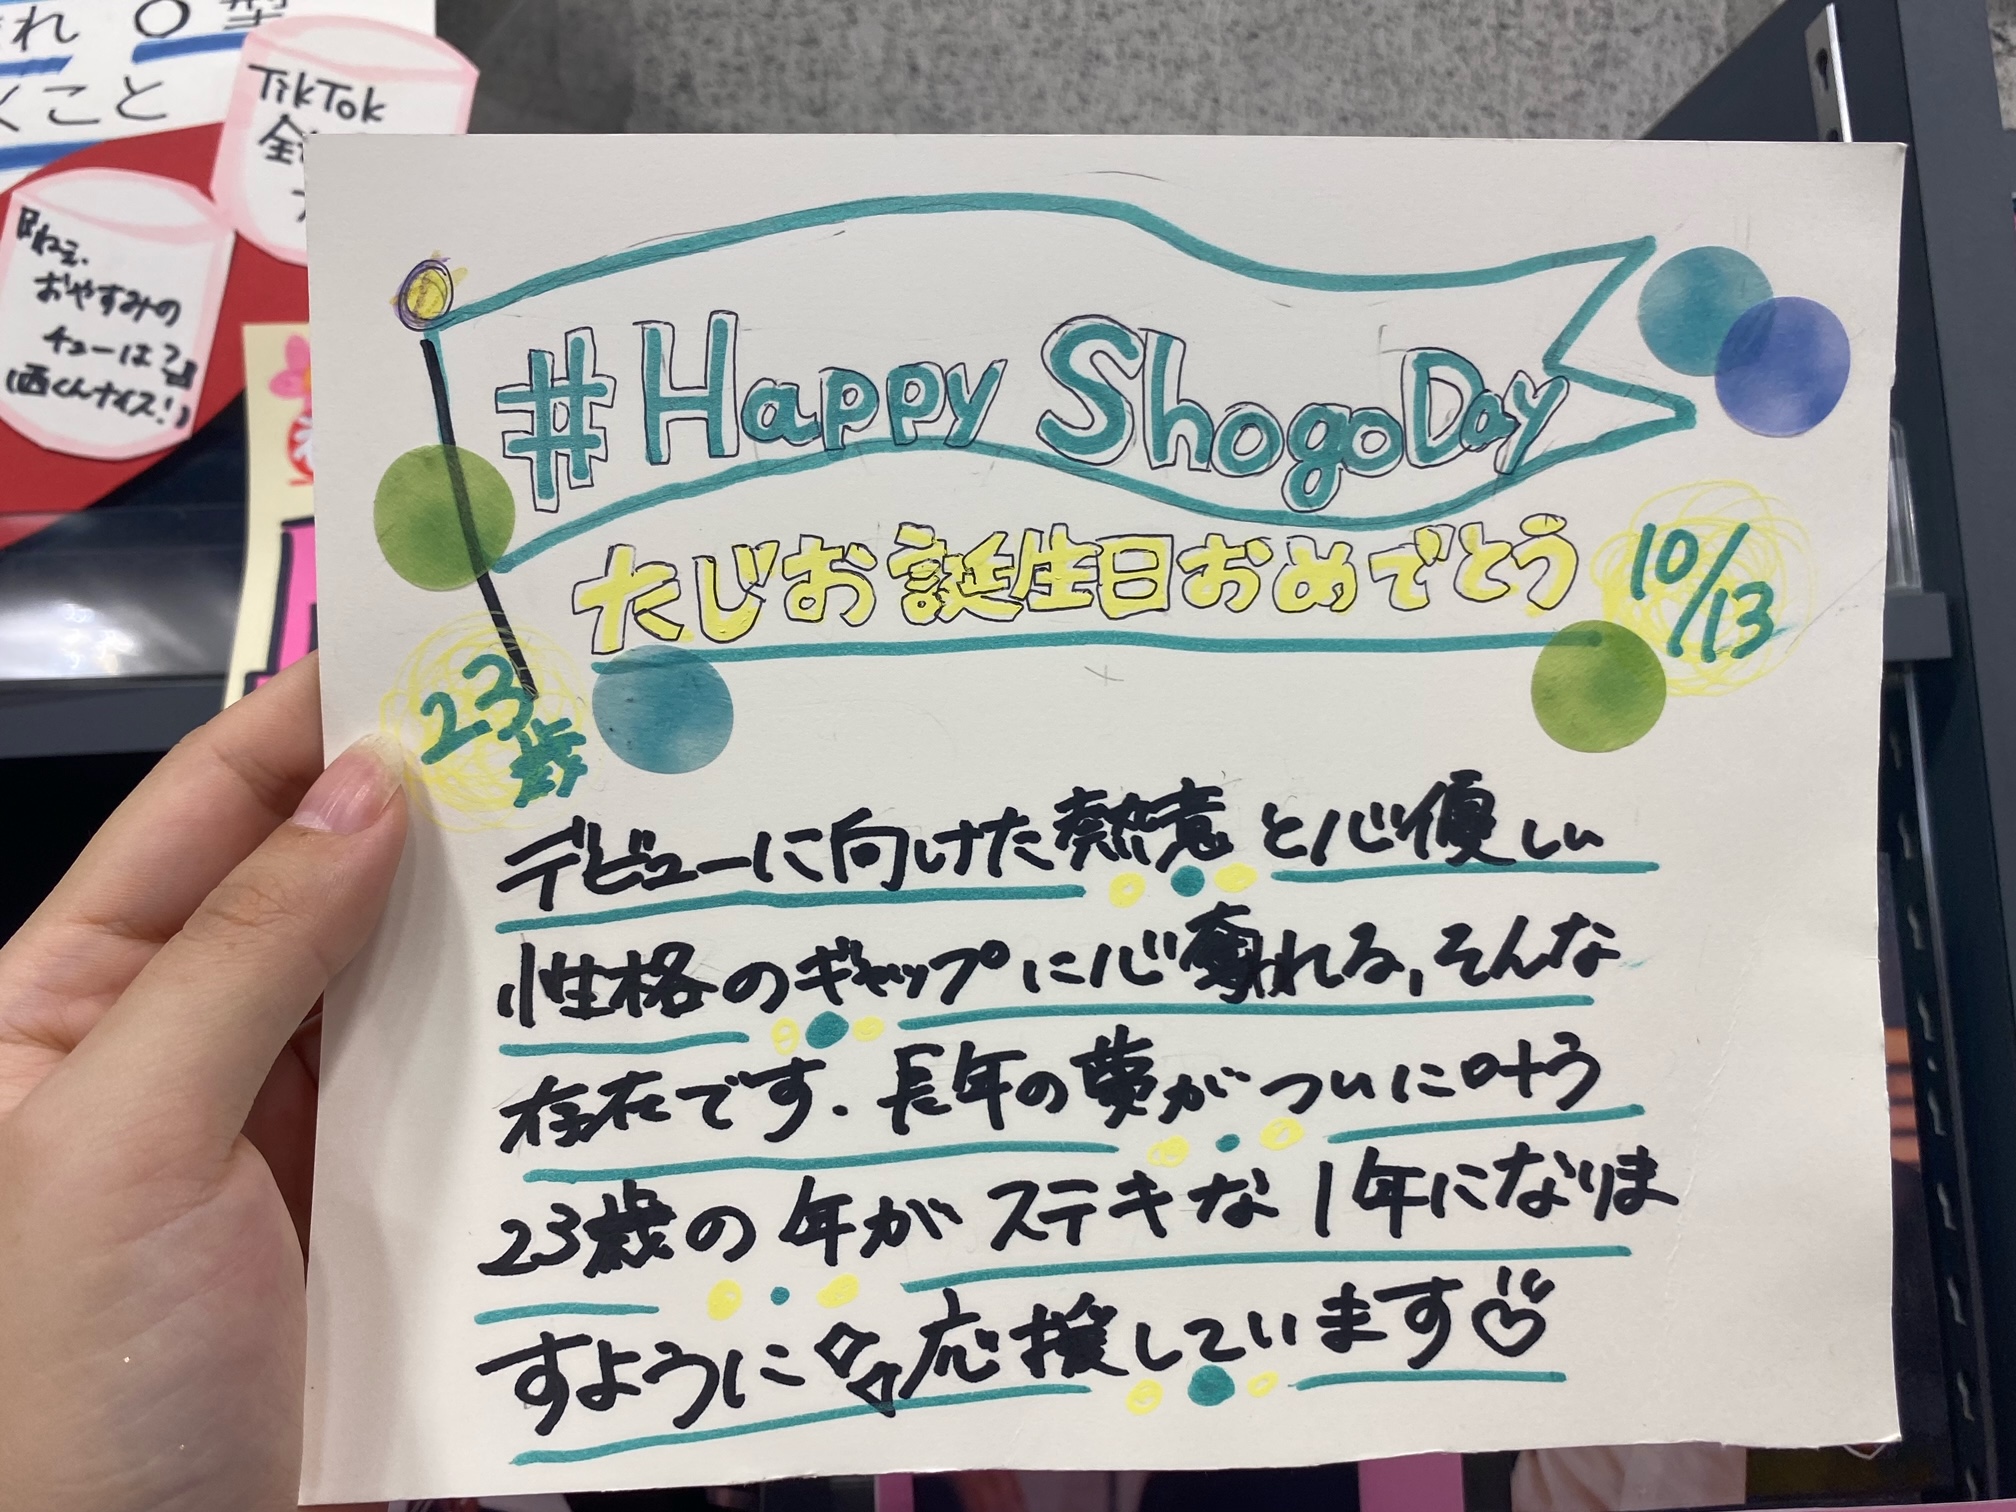 まれ O型
くこと
TikTok
『ねぇ、
おやすみの
チューは？』
(西くんナイス!)
#Happy ShogoDay
たじお誕生日おめでとう
10/13
23歳
デビューに向けた熱意と心優しい
性格のギャップに心奪われる,そんな
存在です.長年の夢がついに叶う
23歳の年がステキな1年になりま
すように応援しています